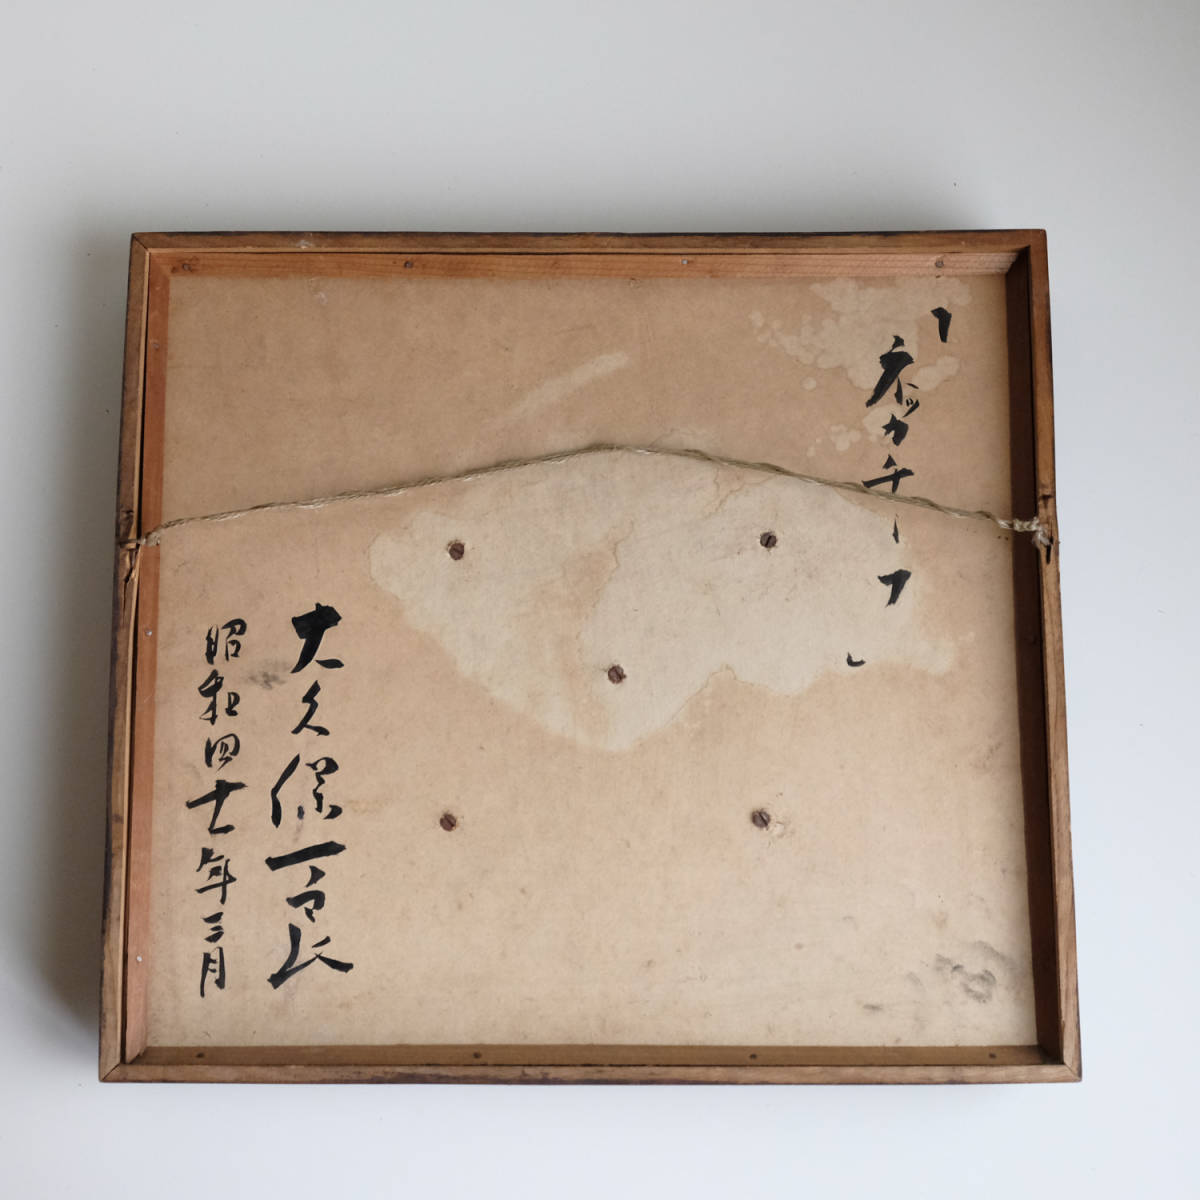 「ネッカチーフ」
大久保一良
昭和四十一年三月